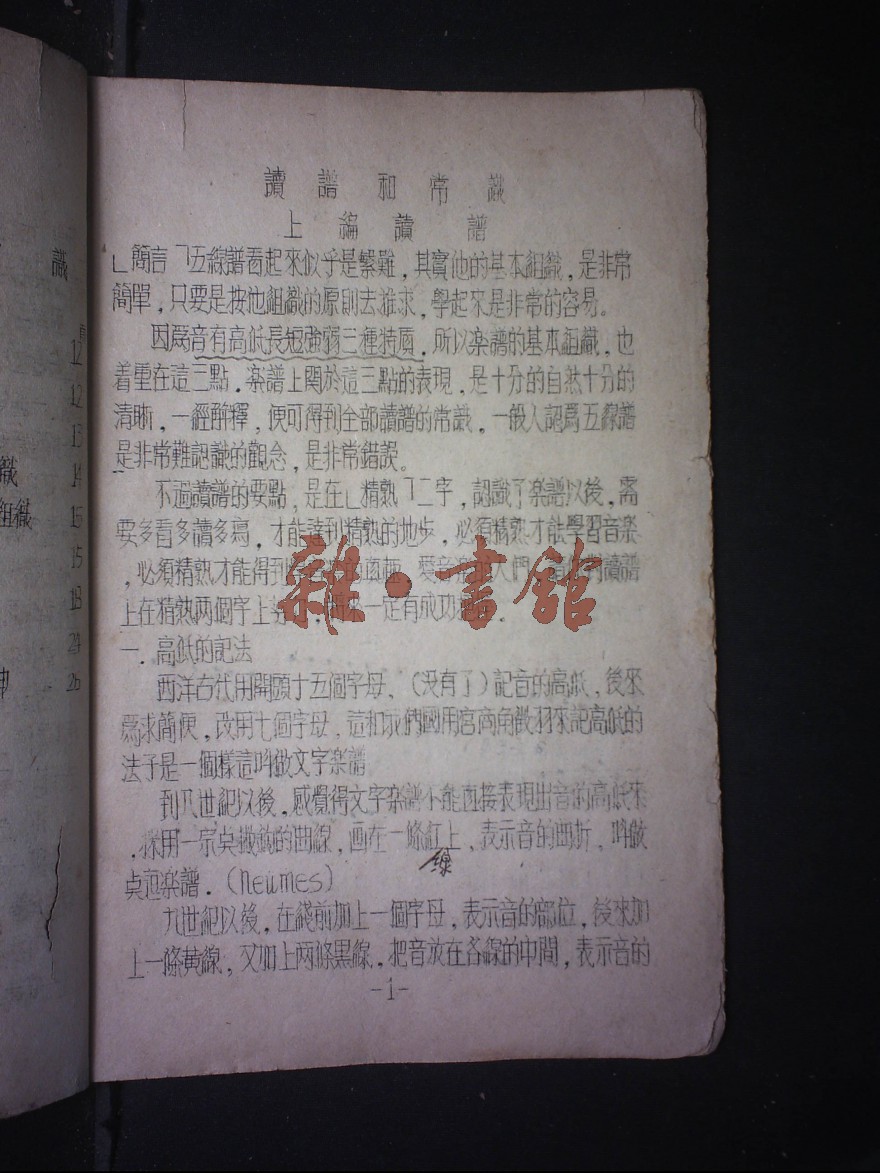 識
12
12
13
織
14
組織
16
15
18
24
26
讀譜和常識
上編讀譜
﹂簡言﹁五線譜看起來似乎是繁難，其實他的基本組織，是非常
簡單，只要是按他組織的原則去推求，學起來是非常的容易。
因爲音有高低長短強弱三種特質，所以楽譜的基本組織，也
着重在這三點．楽譜上關於這三點的表現，是十分的自然十分的
清晰，一經解釋，便可得到全部讀譜的常識，一般人認爲五線譜
是非常難認識的觀念，是非常錯誤。
不過讀譜的要點，是在﹂精熟﹁二字，認識了楽譜以後，需
要多看多讀多寫，才能達到精熟的地步，必須精熟才能學習音楽
，必須精熟才能得到 人們 對讀譜
上在精熟两個字上 一定有成功
一．高低的記法
西洋古代用開頭十五個字母、（没有了）記音的高低，後來
爲求簡便，改用七個字母，這和我們國用宮商角徵羽來記高低的
法子是一個樣這叫做文字楽譜
到八世紀以後，感覺得文字楽譜不能直接表現出音的高低來
．採用一宗 的曲線，画在一條紅上，表示音的曲折，叫做
線
楽譜．（neumes）
九世紀以後，在綫前加上一個字母，表示音的部位，後來加
上一條黄線，又加上两條黒線，把音放在各線的中間，表示音的
-1-
雜·書館